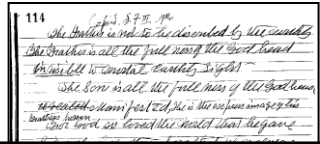 114
The Father is not to be described by the earthly
The Father is all the fullness of the God head
invisible to mortal earthly Sight
The Son is all the fullness of the God head
revealed manifested, He is the express image of his
Fathers person
God so loved the world that he gave